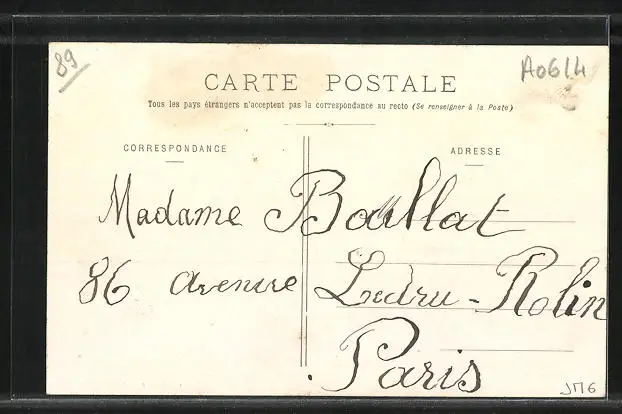 89
A0614
CARTE POSTALE
Tous les pays étrangers n'acceptent pas la correspondance au recto (Se renseigner à la Poste)
CORRESPONDANCE
ADRESSE
Madame Boullat
86 avenue Ledru-Rollin
Paris